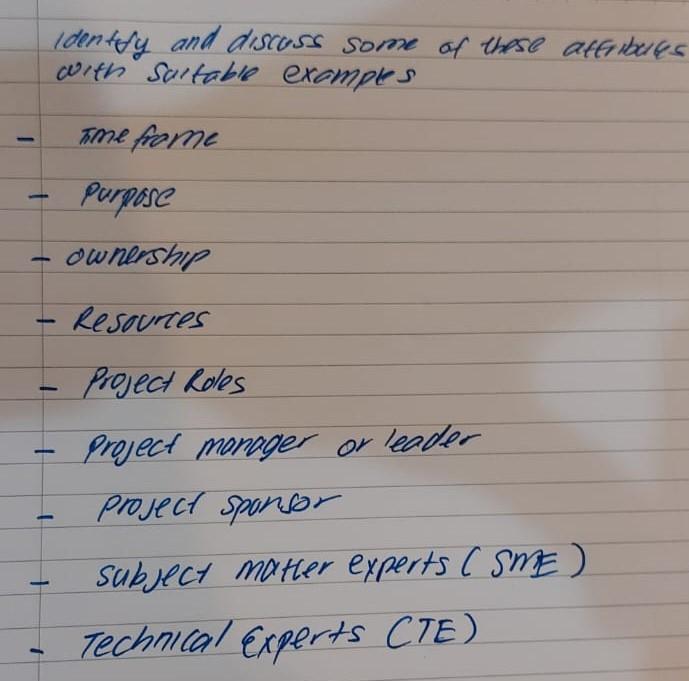 Identify and discuss some of these attributes
with suitable examples
- Time frame
- Purpose
- ownership
- Resources
- Project Roles
- Project manager or leader
- Project sponsor
- subject matter experts (SME)
- Technical Experts (TE)